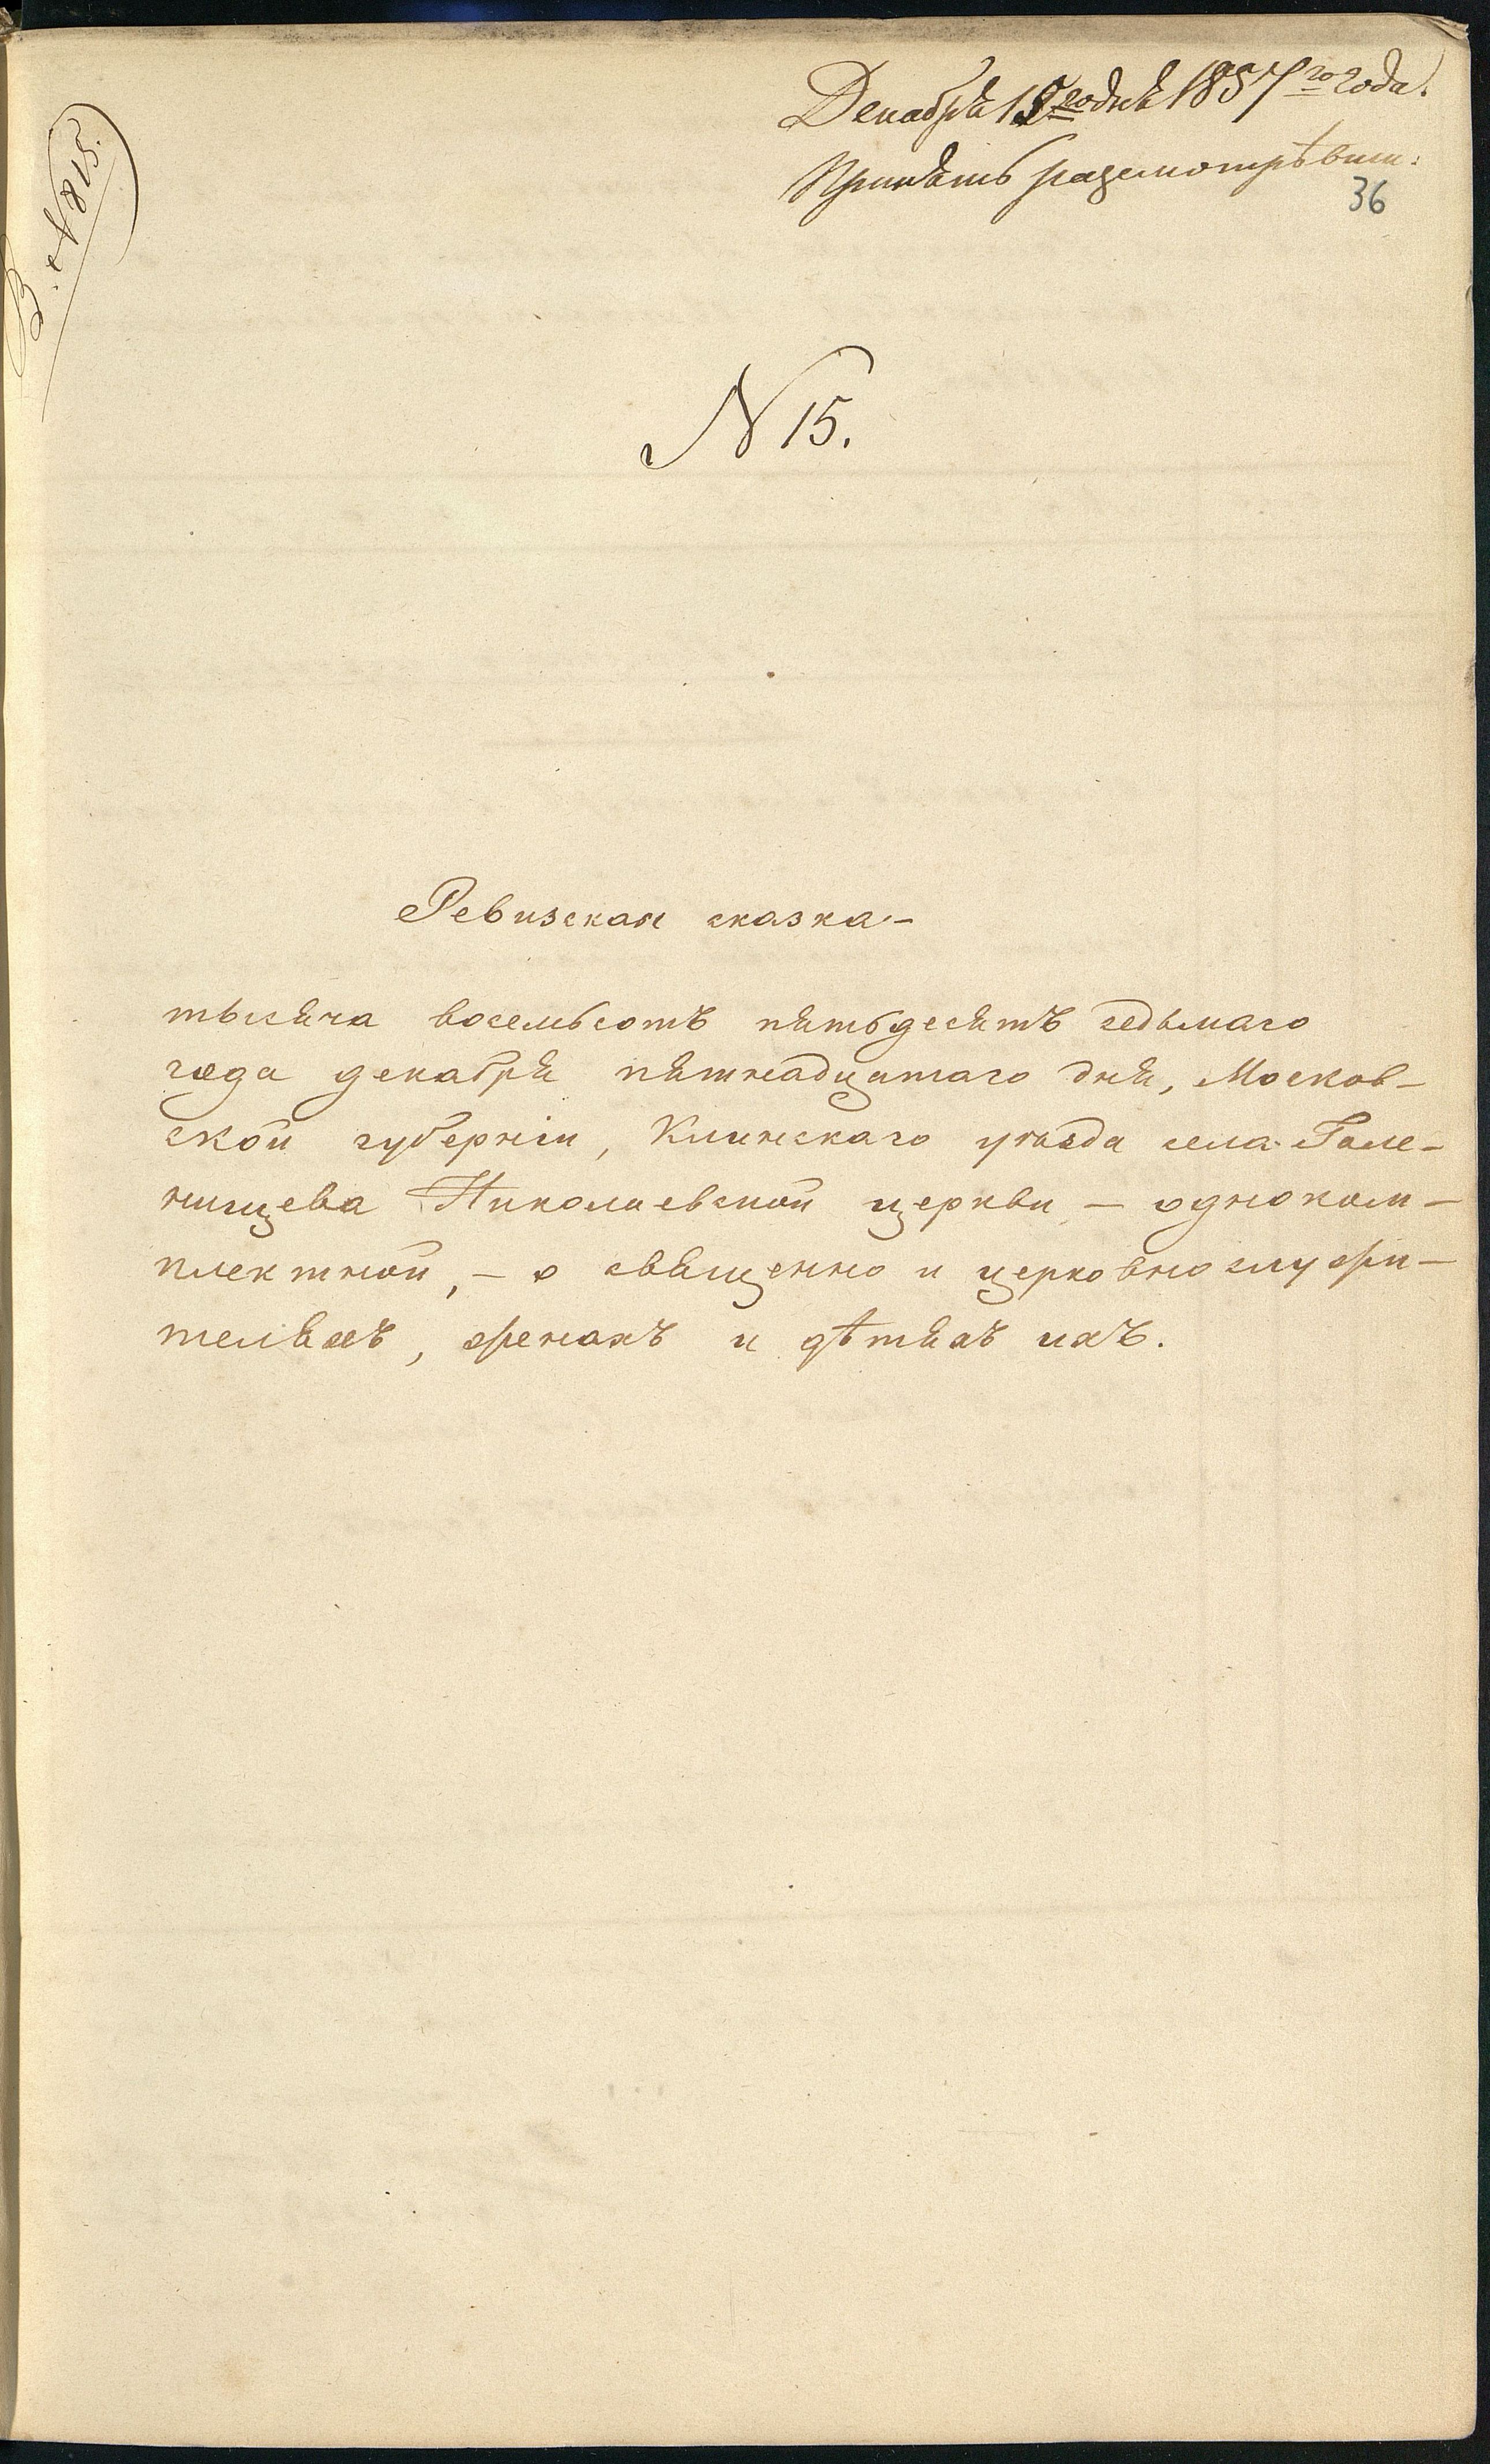 В. № 815.
Декабря 15го дня 1857го года.
Принять разсмотрѣвши.
36
№ 15.
Ревизская сказка –
тысяча восемьсотъ пятьдесятъ седьмаго
года декабря пятнадцатаго дня, Москов-
ской губерніи, Клинскаго уѣзда села Голе-
нищева Николаевской церкви – одноком-
плектной, – о священно и церковнослужи-
теляхъ, женахъ и дѣтяхъ ихъ.